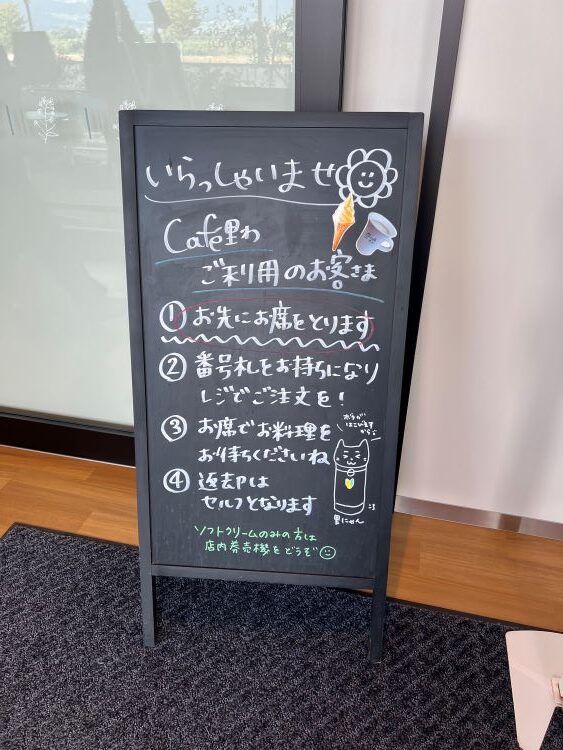 いらっしゃいませ
Cafe里わ
ご利用のお客さま
① お先にお席をとります
② 番号札をお持ちになり
レジでご注文を！
③ お席でお料理を
お待ちくださいね
ボクが
はこびます
から
④ 返却は
セルフとなります
里にゃん
ソフトクリームのみの方は
店内券売機をどうぞ